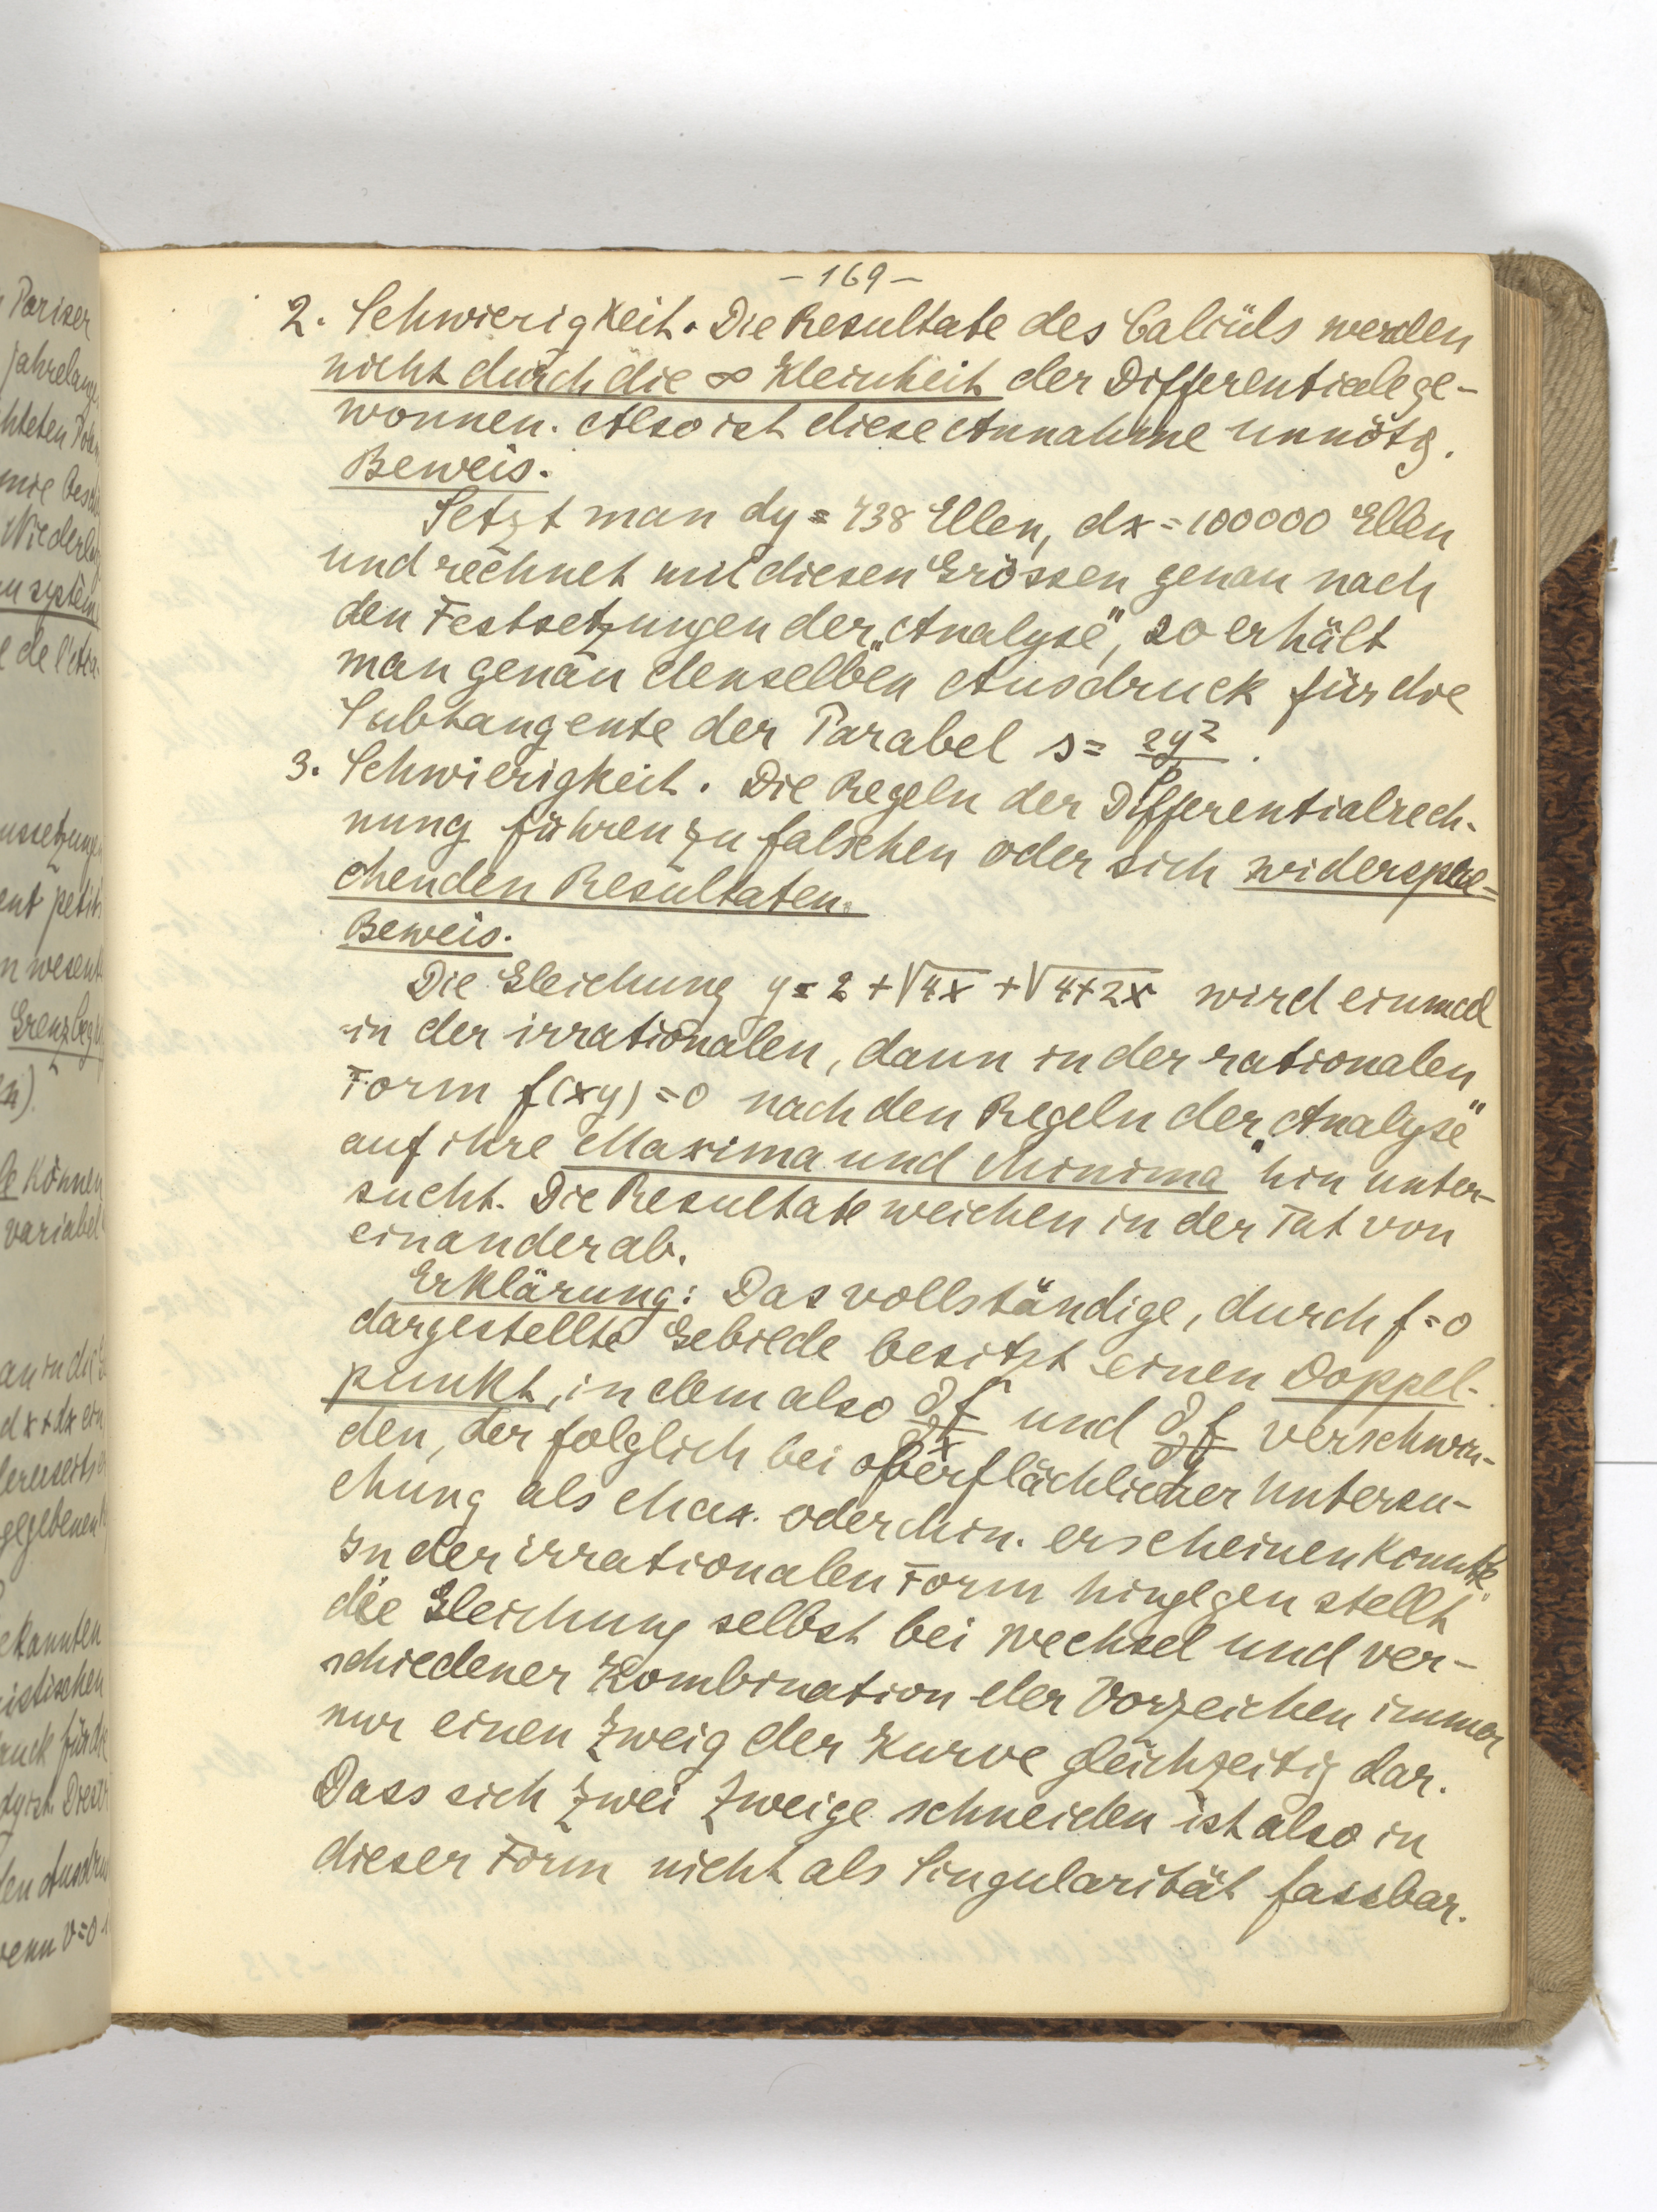 - 169 -
2. Schwierigkeit. Die Resultate des Calcüls werden
nicht durch die ∞ Kleinheit der Differentiale ge-
wonnen. Also ist diese Annahme unnötg.
Beweis.
Setzt man dy = 738 Ellen, dx = 100000 Ellen
und rechnet mit diesen Grössen genau nach
den Festsetzungen der „Analyse", so erhält
man genau denselben Ausdruck für die
Subtangente der Parabel s = 2y²/p.
3. Schwierigkeit. Die Regeln der Differentialrech-
nung führen zu falschen oder sich widerspre-
chenden Resultaten.
Beweis.
Die Gleichung y = 2 + √4x + √4+2x wird einmal
in der irrationalen, dann in der rationalen
Form f(xy) = 0 nach den Regeln der „Analyse"
auf ihre Maxima und Minima hin unter-
sucht. Die Resultate weichen in der Tat von
einander ab.
Erklärung: Das vollständige, durch f = 0
dargestellte Gebilde besitzt einen Doppel-
punkt, in dem also ∂f/∂x und ∂f/∂y verschwin-
den, der folglich bei oberflächlicher Untersu-
chung als Max. oder Min. erscheinen konnte.
In der irrationalen Form hingegen stellt
die Gleichung selbst bei Wechsel und ver-
schiedener Kombination der Vorzeichen immer
nur einen Zweig der Kurve gleichzeitig dar.
Dass sich zwei Zweige schneiden ist also in
dieser Form nicht als Singularität fassbar.
Pariser
jahrelang
Wiederle
de l'Aca
petit
wesent
Grenzbeg
können
variabel
gegebenen
ekannten
istischen
wenn v=0